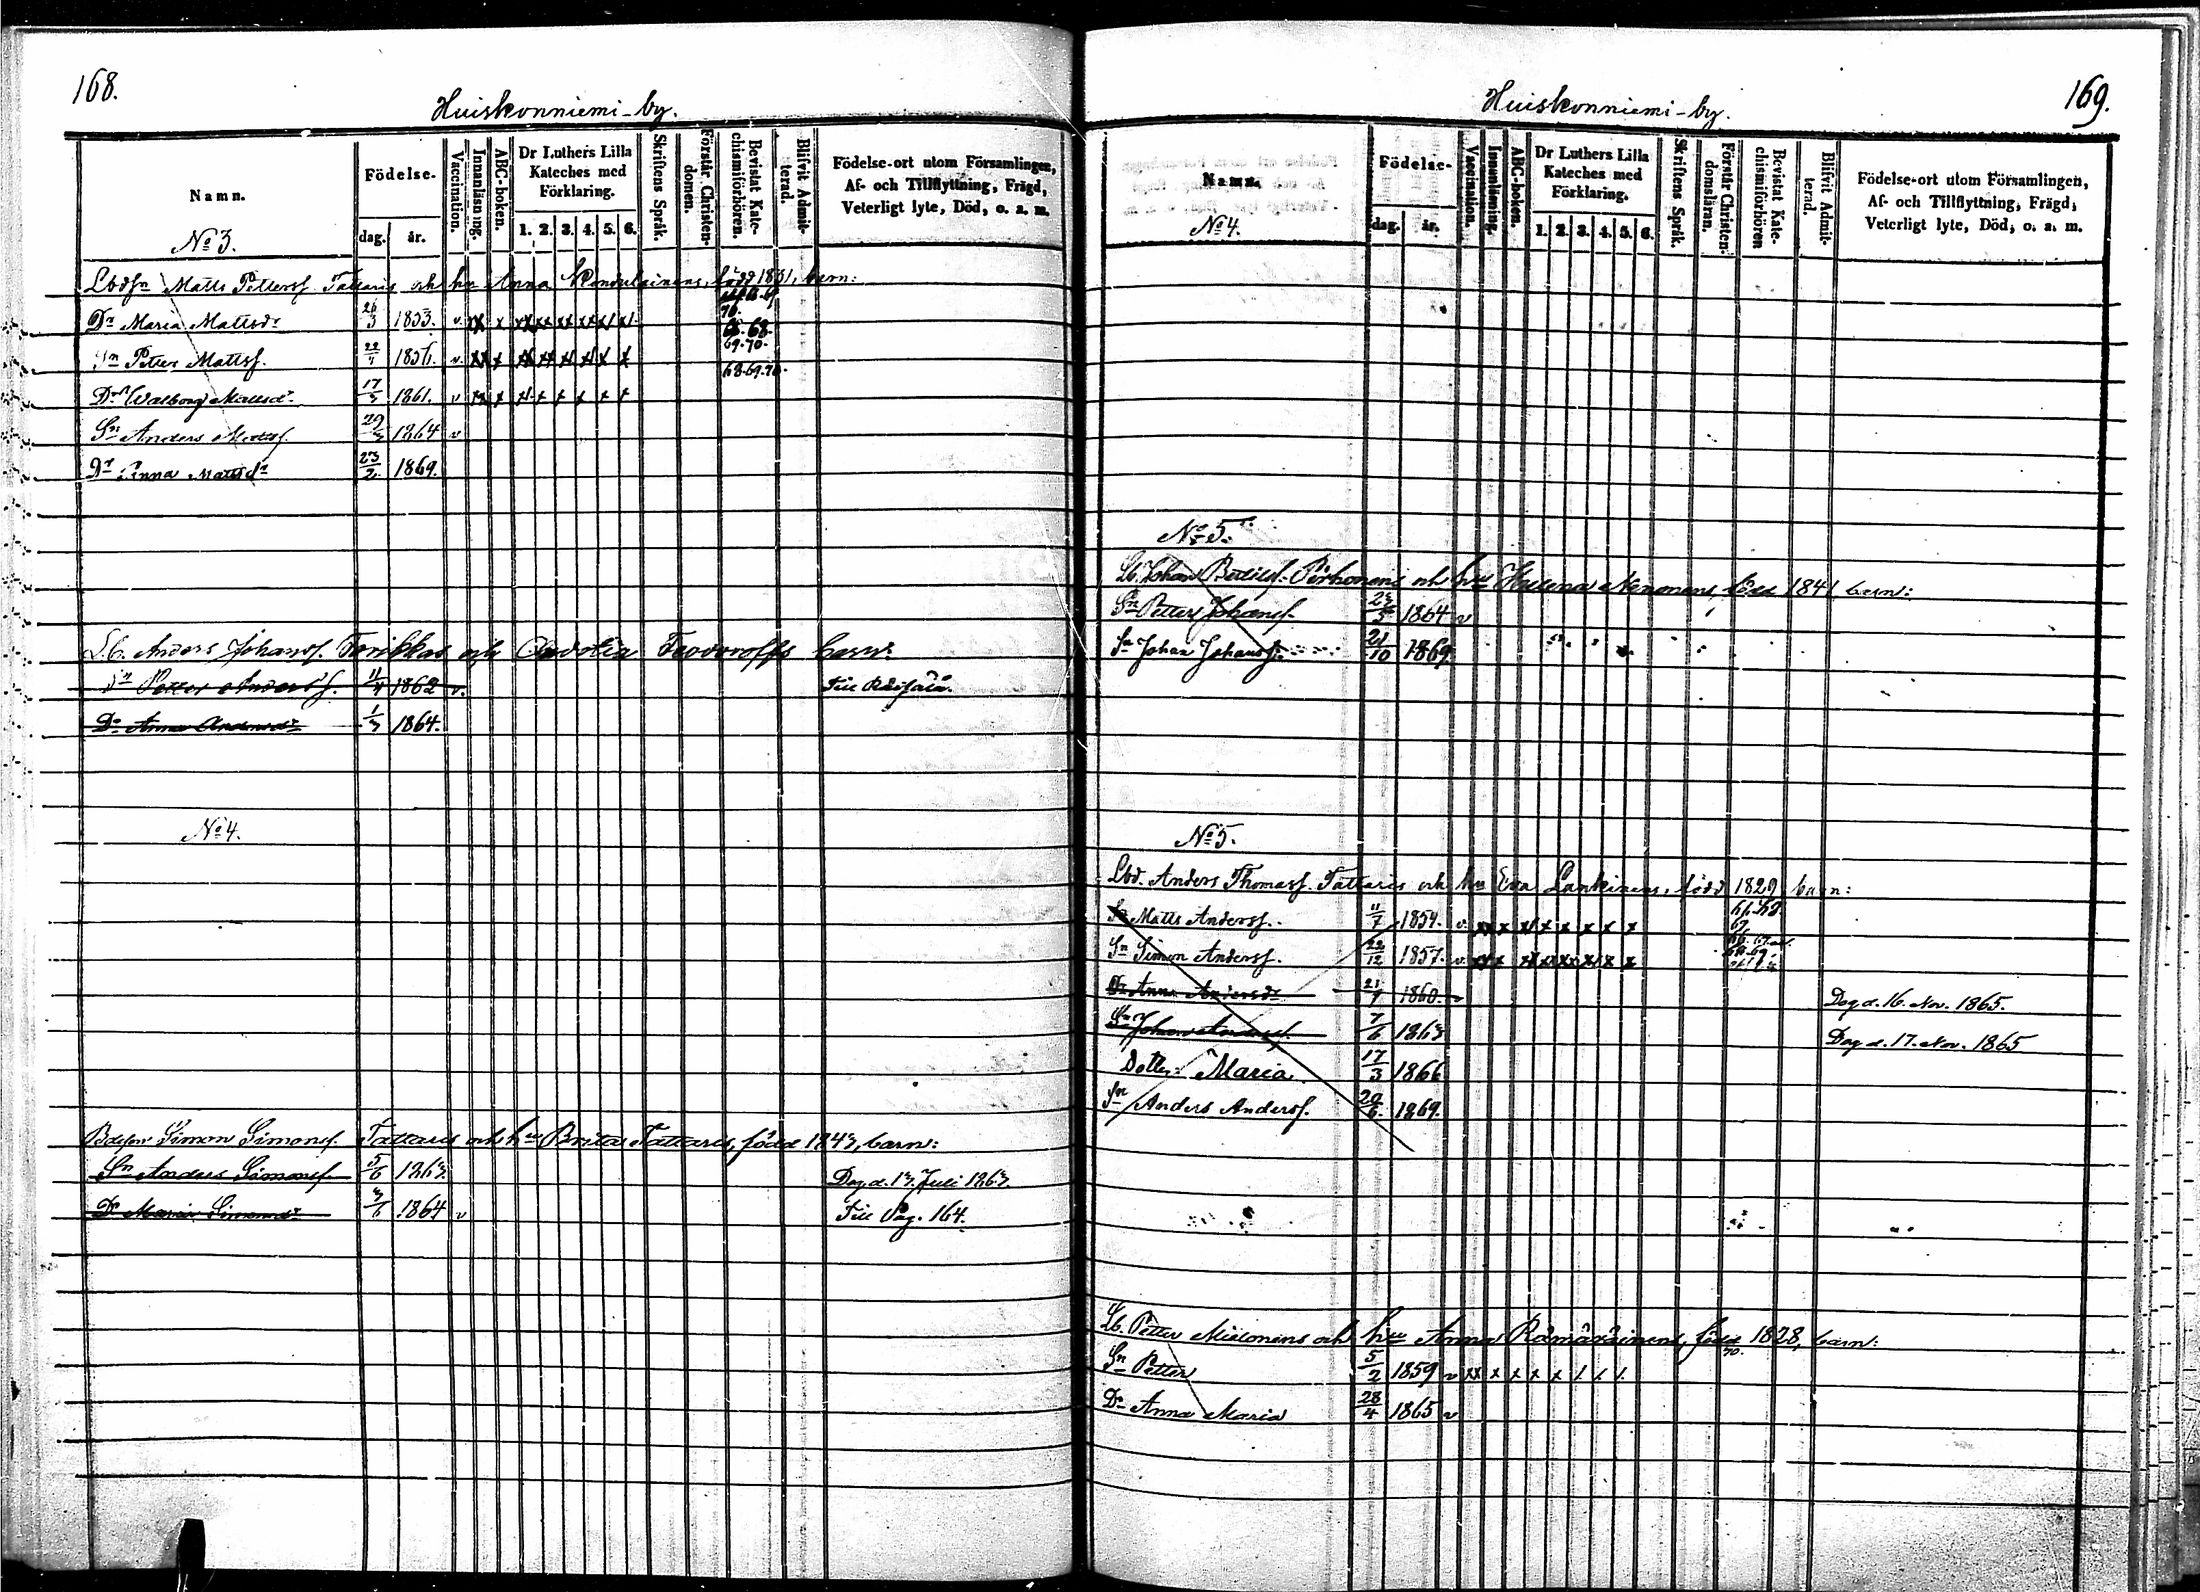 168.
Huiskonniemi-by.
Namn.
Födelse-
dag.
år.
Vaccination.
Innanläsning.
ABC-boken.
Dr Luthers Lilla
Kateches med
Förklaring.
1. 2. 3. 4. 5. 6.
Skriftens Språk.
Förstår Christen-
domen.
Bevistat Kate-
chismiförhören.
Blifvit Admit-
terad.
Födelse-ort utom Församlingen,
Af- och Tillflyttning, Frägd,
Veterligt lyte, Död, o. s. m.
No 3.
Matts Petterss. Tattaris och hu Anna född 1831, barn:
Dr Maria Mattsdr 26/3 1853. v.
70.
66. 68.
Sn Petter Mattss. 1856. v.
69. 70.
68. 69. 70.
Dr Walborg Mattsdr. 17/5 1861. v
Sn Anders Mattss. 29/3 1864 v
Dr Anna Mattsdr 23/2 1869.
L.b. Anders Johanss. och Feodoroffs barn:
Sn Petter Anderss. 11/4 1862 v. Till Räisälä.
Dr Anna Andersdr 1/3 1864.
No 4.
Simon Simonss. Tattaris och hu Brita Tattaris, född 1843, barn:
Sn Anders Simonss. 5/6 1863. Dog d. 13. Juli 1863.
Dr Maria Simonsdr 3/6 1864 v Till Pag. 164.
169.
Huiskonniemi-by.
Namn.
Födelse-
dag.
år.
Vaccination.
Innanläsning.
ABC-boken.
Dr Luthers Lilla
Kateches med
Förklaring.
1. 2. 3. 4. 5. 6.
Skriftens Språk.
Förstår Christen-
domsläran.
Bevistat Kate-
chismiförhören
Blifvit Admit-
terad.
Födelse-ort utom Församlingen,
Af- och Tillflyttning, Frägd,
Veterligt lyte, Död, o. s. m.
No 4.
No 5.
Lb. Johan Bertilss. Pärhonens och hu Helena Nenonens, född 1841 barn:
Sn Petter Johanss. 1864 v
Sn Johan Johanss. 21/10 1869
No 5.
Lbd. Anders Thomass. Tattaris och hu Eva Lankinens, född 1829, barn:
Sn Matts Anderss. 11/7 1854. v.
Sn Simon Anderss. 22/12 1857. v.
Dr Anna Andersdr 21/9 1860. v Dog d. 16. Nov. 1865.
Sn Johan Anderss. 7/6 1863 Dog d. 17. Nov. 1865
Dotter Maria 17/3 1866
Sn Anders Anderss. 20/6. 1869.
Lb. Petter Mielonens och hu Anna Rämäväinens, född 1828, barn:
70.
Sn Petter 5/2 1859 v
Dr Anna Maria 28/4 1865 v